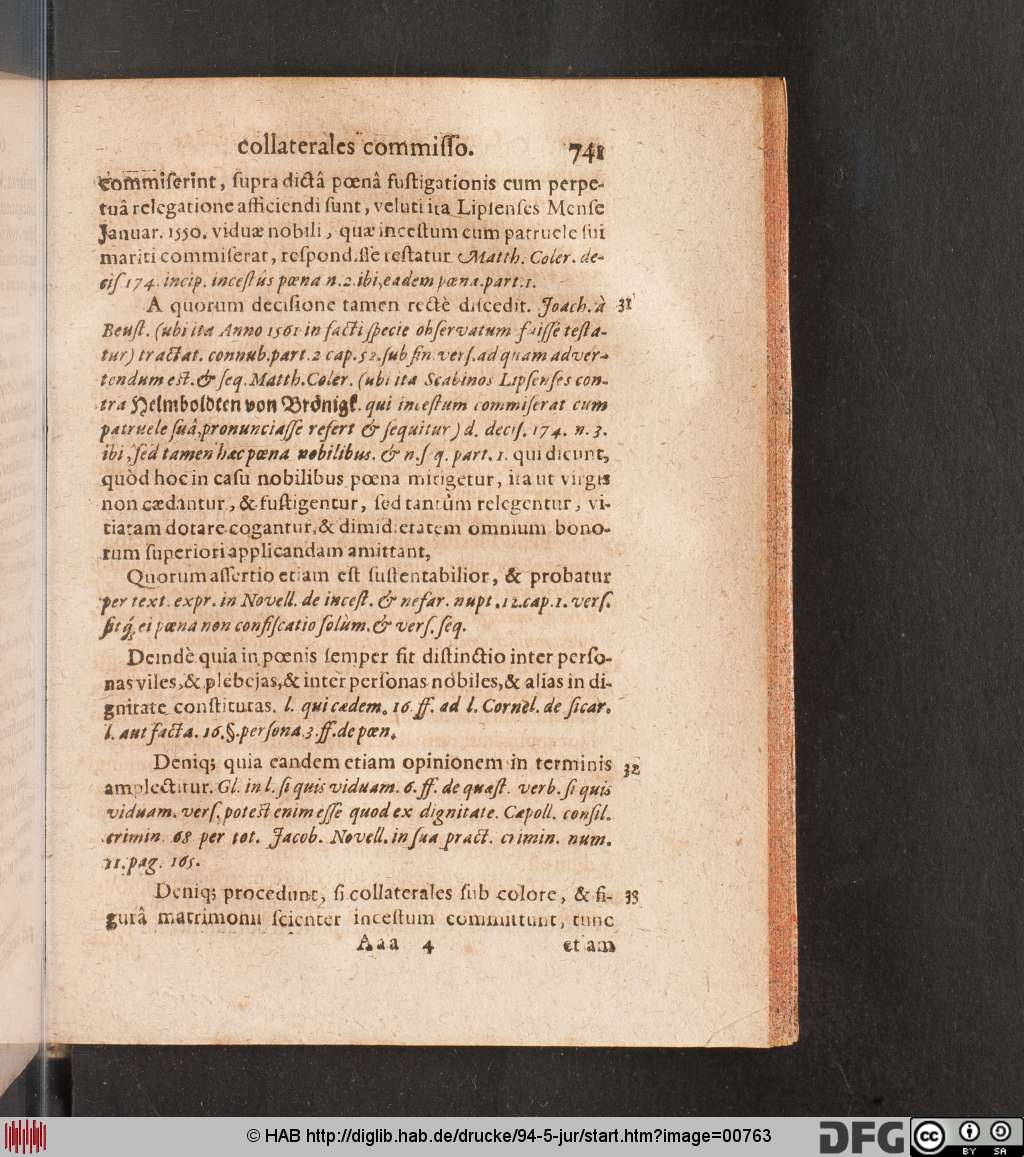 collaterales commiſſo. 741
commiſerint, ſupra dictâ pœnâ fuſtigationis cum perpe-
tuâ relegatione afficiendi ſunt, veluti ita Lipſenſes Menſe
Januar. 1550. viduæ nobili, quæ inceſtum cum patruele ſui
mariti commiſerat, reſpond.ſſe teſtatur Matth. Coler. de-
ciſ 174. incip. inceſtûs pœna n.2. ibi, eadem pœna.part.1.
A quorum deciſione tamen rectè diſcedit. Joach. à 31
Beuſt. (ubi ita Anno 1561 in facti ſpecie obſervatum fuiſſe teſta-
tur) tractat. connub.part.2 cap.52.ſub fin. verſ.ad quam adver-
tendum eſt. & ſeq. Matth.Coler. (ubi ita Scabinos Lipſenſes con-
tra Helmboldten von Brönigk. qui inceſtum commiſerat cum
patruele ſuâ,pronunciaſſe refert & ſequitur) d. deciſ. 174. n. 3.
ibi, ſed tamen hæc pœna nobilibus. & n.ſ q. part. 1. qui dicunt,
quòd hoc in caſu nobilibus pœna mitigetur, ita ut virgis
non cædantur, & fuſtigentur, ſed tantûm relegentur, vi-
tiatam dotare cogantur,& dimidietatem omnium bono-
rum ſuperiori applicandam amittant,
Quorum aſſertio etiam eſt ſuſtentabilior, & probatur
per text. expr. in Novell. de inceſt. & nefar. nupt .12.cap.1. verſ.
ſitq́; ei pœna non confiſcatio ſolùm. & verſ. ſeq.
Deindè quia in pœnis ſemper fit diſtinctio inter perſo-
nas viles,& plebejas,& inter perſonas nobiles,& alias in di-
gnitate conſtitutas. l. qui cædem. 16. ff. ad l. Cornel. de ſicar.
l. aut facta. 16.§.perſona 3.ff.de pœn.
Deniq; quia eandem etiam opinionem in terminis 32
amplectitur. Gl. in l. ſi quis viduam. 6. ff. de quæſt. verb. ſi quis
viduam. verſ. poteſt enim eſſe quod ex dignitate. Cæpoll. conſil.
crimin. 68 per tot. Jacob. Novell. in ſua pract. crimin. num.
21. pag. 165.
Deniq; procedunt, ſi collaterales ſub colore, & fi- 33
gurâ matrimonii ſcienter inceſtum committunt, tunc
Aaa 4 etiam
© HAB http://diglib.hab.de/drucke/94-5-jur/start.htm?image=00763
DFG
cc BY SA